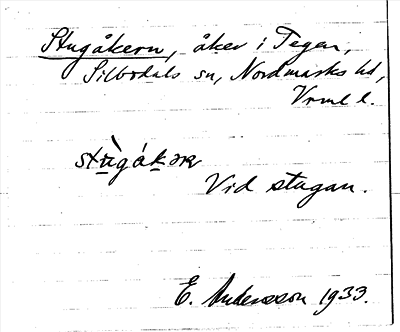 Stugåkern, åker i Tegen,
Silbodals sn, Nordmarks hd,
Vrml l.
stùgåkəɳ
Vid stugan.
E. Andersson 1933.